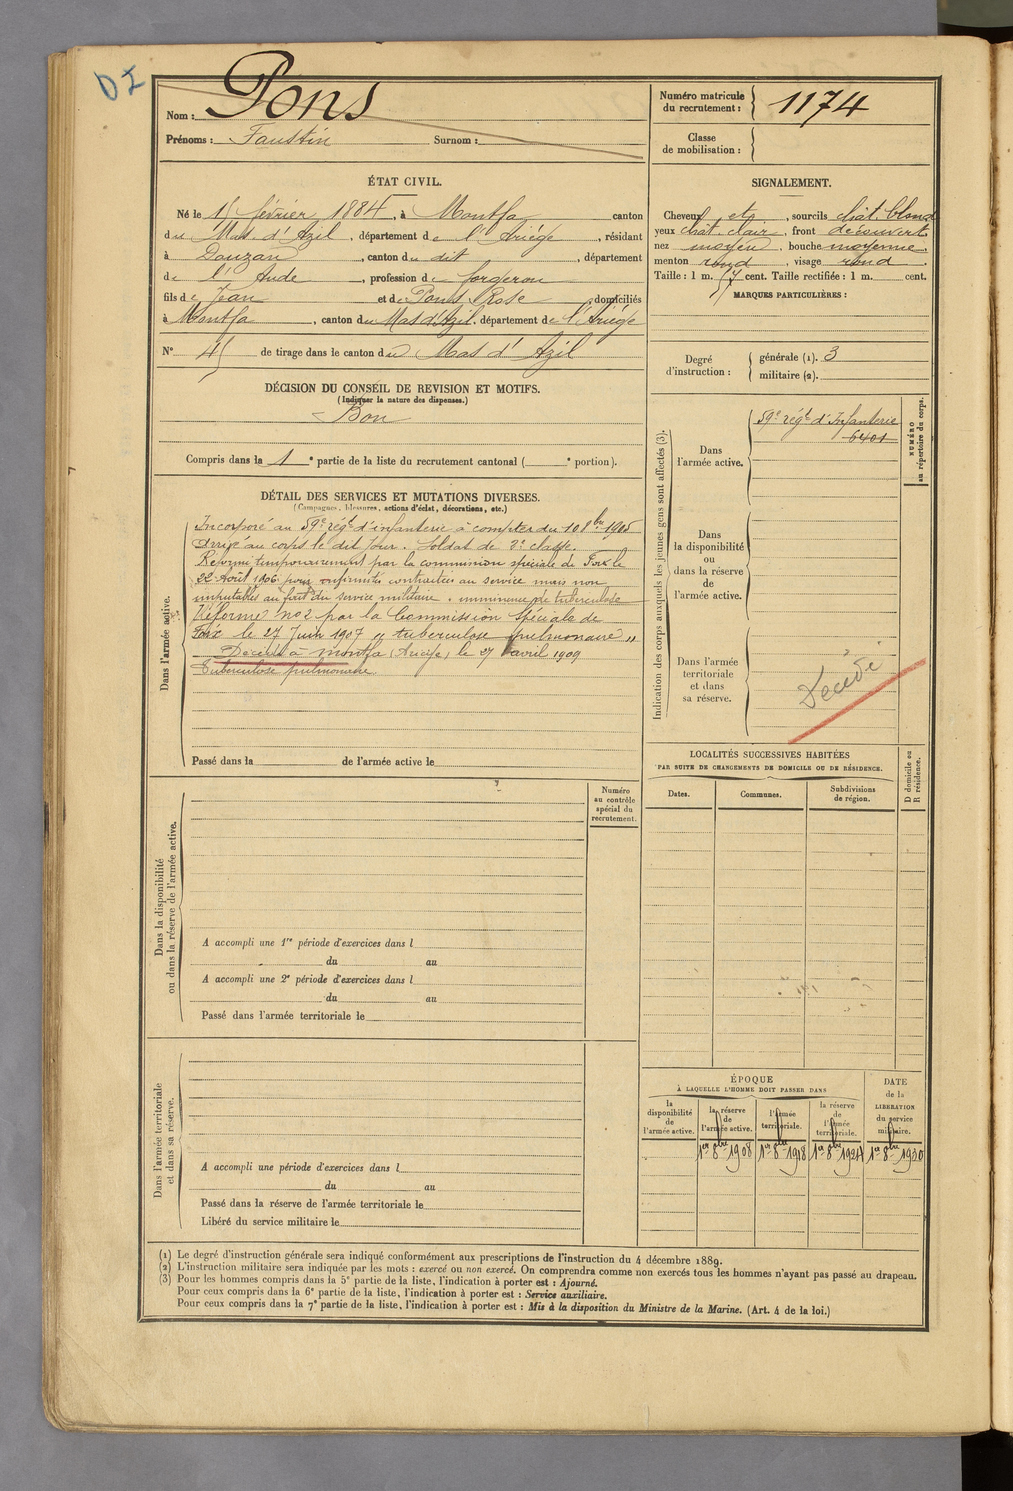 DI
Nom : Pons
Prénoms : Faustin Surnom :
Numéro matricule du recrutement : 1174
Classe de mobilisation :
ÉTAT CIVIL.
Né le 15 février 1884, à Montfa canton
du Mas d'Azil, département de l'Ariège, résidant
à Douzan, canton du dit, département
de l'Aude, profession de forgeron
fils de Jean et de Pons Rose, domiciliés
à Montfa, canton du Mas d'Azil, département de l'Ariège
N° 45 de tirage dans le canton du Mas d'Azil
SIGNALEMENT.
Cheveux et, sourcils chât. blond
yeux chât. clair, front découvert
nez moyen, bouche moyenne,
menton rond, visage rond.
Taille : 1 m. 57 cent. Taille rectifiée : 1 m. cent.
MARQUES PARTICULIÈRES :
Degré d'instruction : générale (1). 3
militaire (2).
DÉCISION DU CONSEIL DE REVISION ET MOTIFS.
(Indiquer la nature des dispenses.)
Bon
Compris dans la 1e partie de la liste du recrutement cantonal ( e portion).
DÉTAIL DES SERVICES ET MUTATIONS DIVERSES.
(Campagnes, blessures, actions d'éclat, décorations, etc.)
Dans l'armée active.
Incorporé au 59e régt d'infanterie à compter du 10 8bre 1905
Arrivé au corps le dit jour. Soldat de 2e classe.
Réformé temporairement par la commission spéciale de Foix le
22 Août 1906 pour infirmités contractées au service mais non
imputables au fait du service militaire, imminence de tuberculose
Réformé no 2 par la Commission Spéciale de
Foix le 27 Juin 1907 "tuberculose pulmonaire"
Décédé à Montfa (Ariège) le 27 avril 1909
Tuberculose pulmonaire.
Passé dans la de l'armée active le
Indication des corps auxquels les jeunes gens sont affectés (3).
NUMÉRO au répertoire du corps.
Dans l'armée active.
59e régt d'Infanterie
6401
Dans la disponibilité ou dans la réserve de l'armée active.
Dans l'armée territoriale et dans sa réserve.
Décédé
LOCALITÉS SUCCESSIVES HABITÉES
PAR SUITE DE CHANGEMENTS DE DOMICILE OU DE RÉSIDENCE.
Dates. Communes. Subdivisions de région. D domicile ou R résidence.
Dans la disponibilité ou dans la réserve de l'armée active.
Numéro au contrôle spécial du recrutement.
A accompli une 1re période d'exercices dans l
du au
A accompli une 2e période d'exercices dans l
du au
Passé dans l'armée territoriale le
Dans l'armée territoriale et dans sa réserve.
A accompli une période d'exercices dans l
du au
Passé dans la réserve de l'armée territoriale le
Libéré du service militaire le
ÉPOQUE
À LAQUELLE L'HOMME DOIT PASSER DANS
la disponibilité de l'armée active. la réserve de l'armée active. l'armée territoriale. la réserve de l'armée territoriale. DATE de la LIBÉRATION du service militaire.
1er 8bre 1908 1er 8bre 1918 1er 8bre 1924 1er 8bre 1930
(1) Le degré d'instruction générale sera indiqué conformément aux prescriptions de l'instruction du 4 décembre 1889.
(2) L'instruction militaire sera indiquée par les mots : exercé ou non exercé. On comprendra comme non exercés tous les hommes n'ayant pas passé au drapeau.
(3) Pour les hommes compris dans la 5e partie de la liste, l'indication à porter est : Ajourné.
Pour ceux compris dans la 6e partie de la liste, l'indication à porter est : Service auxiliaire.
Pour ceux compris dans la 7e partie de la liste, l'indication à porter est : Mis à la disposition du Ministre de la Marine. (Art. 4 de la loi.)